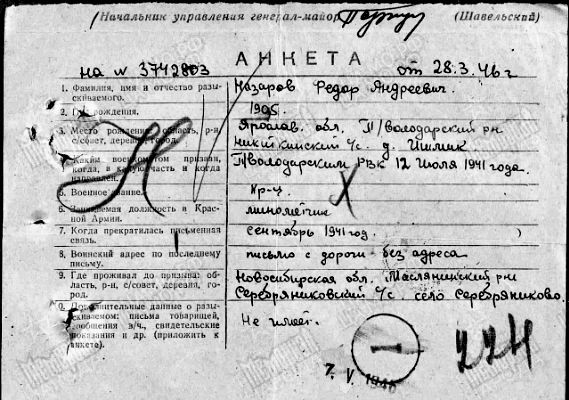 (Начальник управления генерал-майор (Шавельский)
АНКЕТА
на № 3742803 от 28.3.46 г
1. Фамилия, имя и отчество разы-
скиваемого.
Назаров Федор Андреевич.
2. Год рождения.
1905.
3. Место рождения: область, р-н
с/совет, деревня, город.
Яросав. обл. П/володарский рн
Никиткинский с/с. д. Ишлик
4. Каким военкоматом призван,
когда, в какую часть и когда
направлен.
П/володарским РВК 12 Июля 1941 года.
5. Военное звание.
Кр-ц
6. Занимаемая должность в Крас-
ной Армии.
минометчик
7. Когда прекратилась письменная
связь.
сентябрь 1941 год.
8. Воинский адрес по последнему
письму.
письмо с дороги без адреса
9. Где проживал до призыва: об-
ласть, р-н, с/совет, деревня, го-
род.
Новосибирская обл. Маслянинский рн
Серебряниковский с/с. село Серебряниково.
10. Дополнительные данные о разы-
скиваемом: письма товарищей,
сообщения в/ч., свидетельские
показания и др. (приложить к
анкете).
Не имеет.
1
7. V. 1946
224